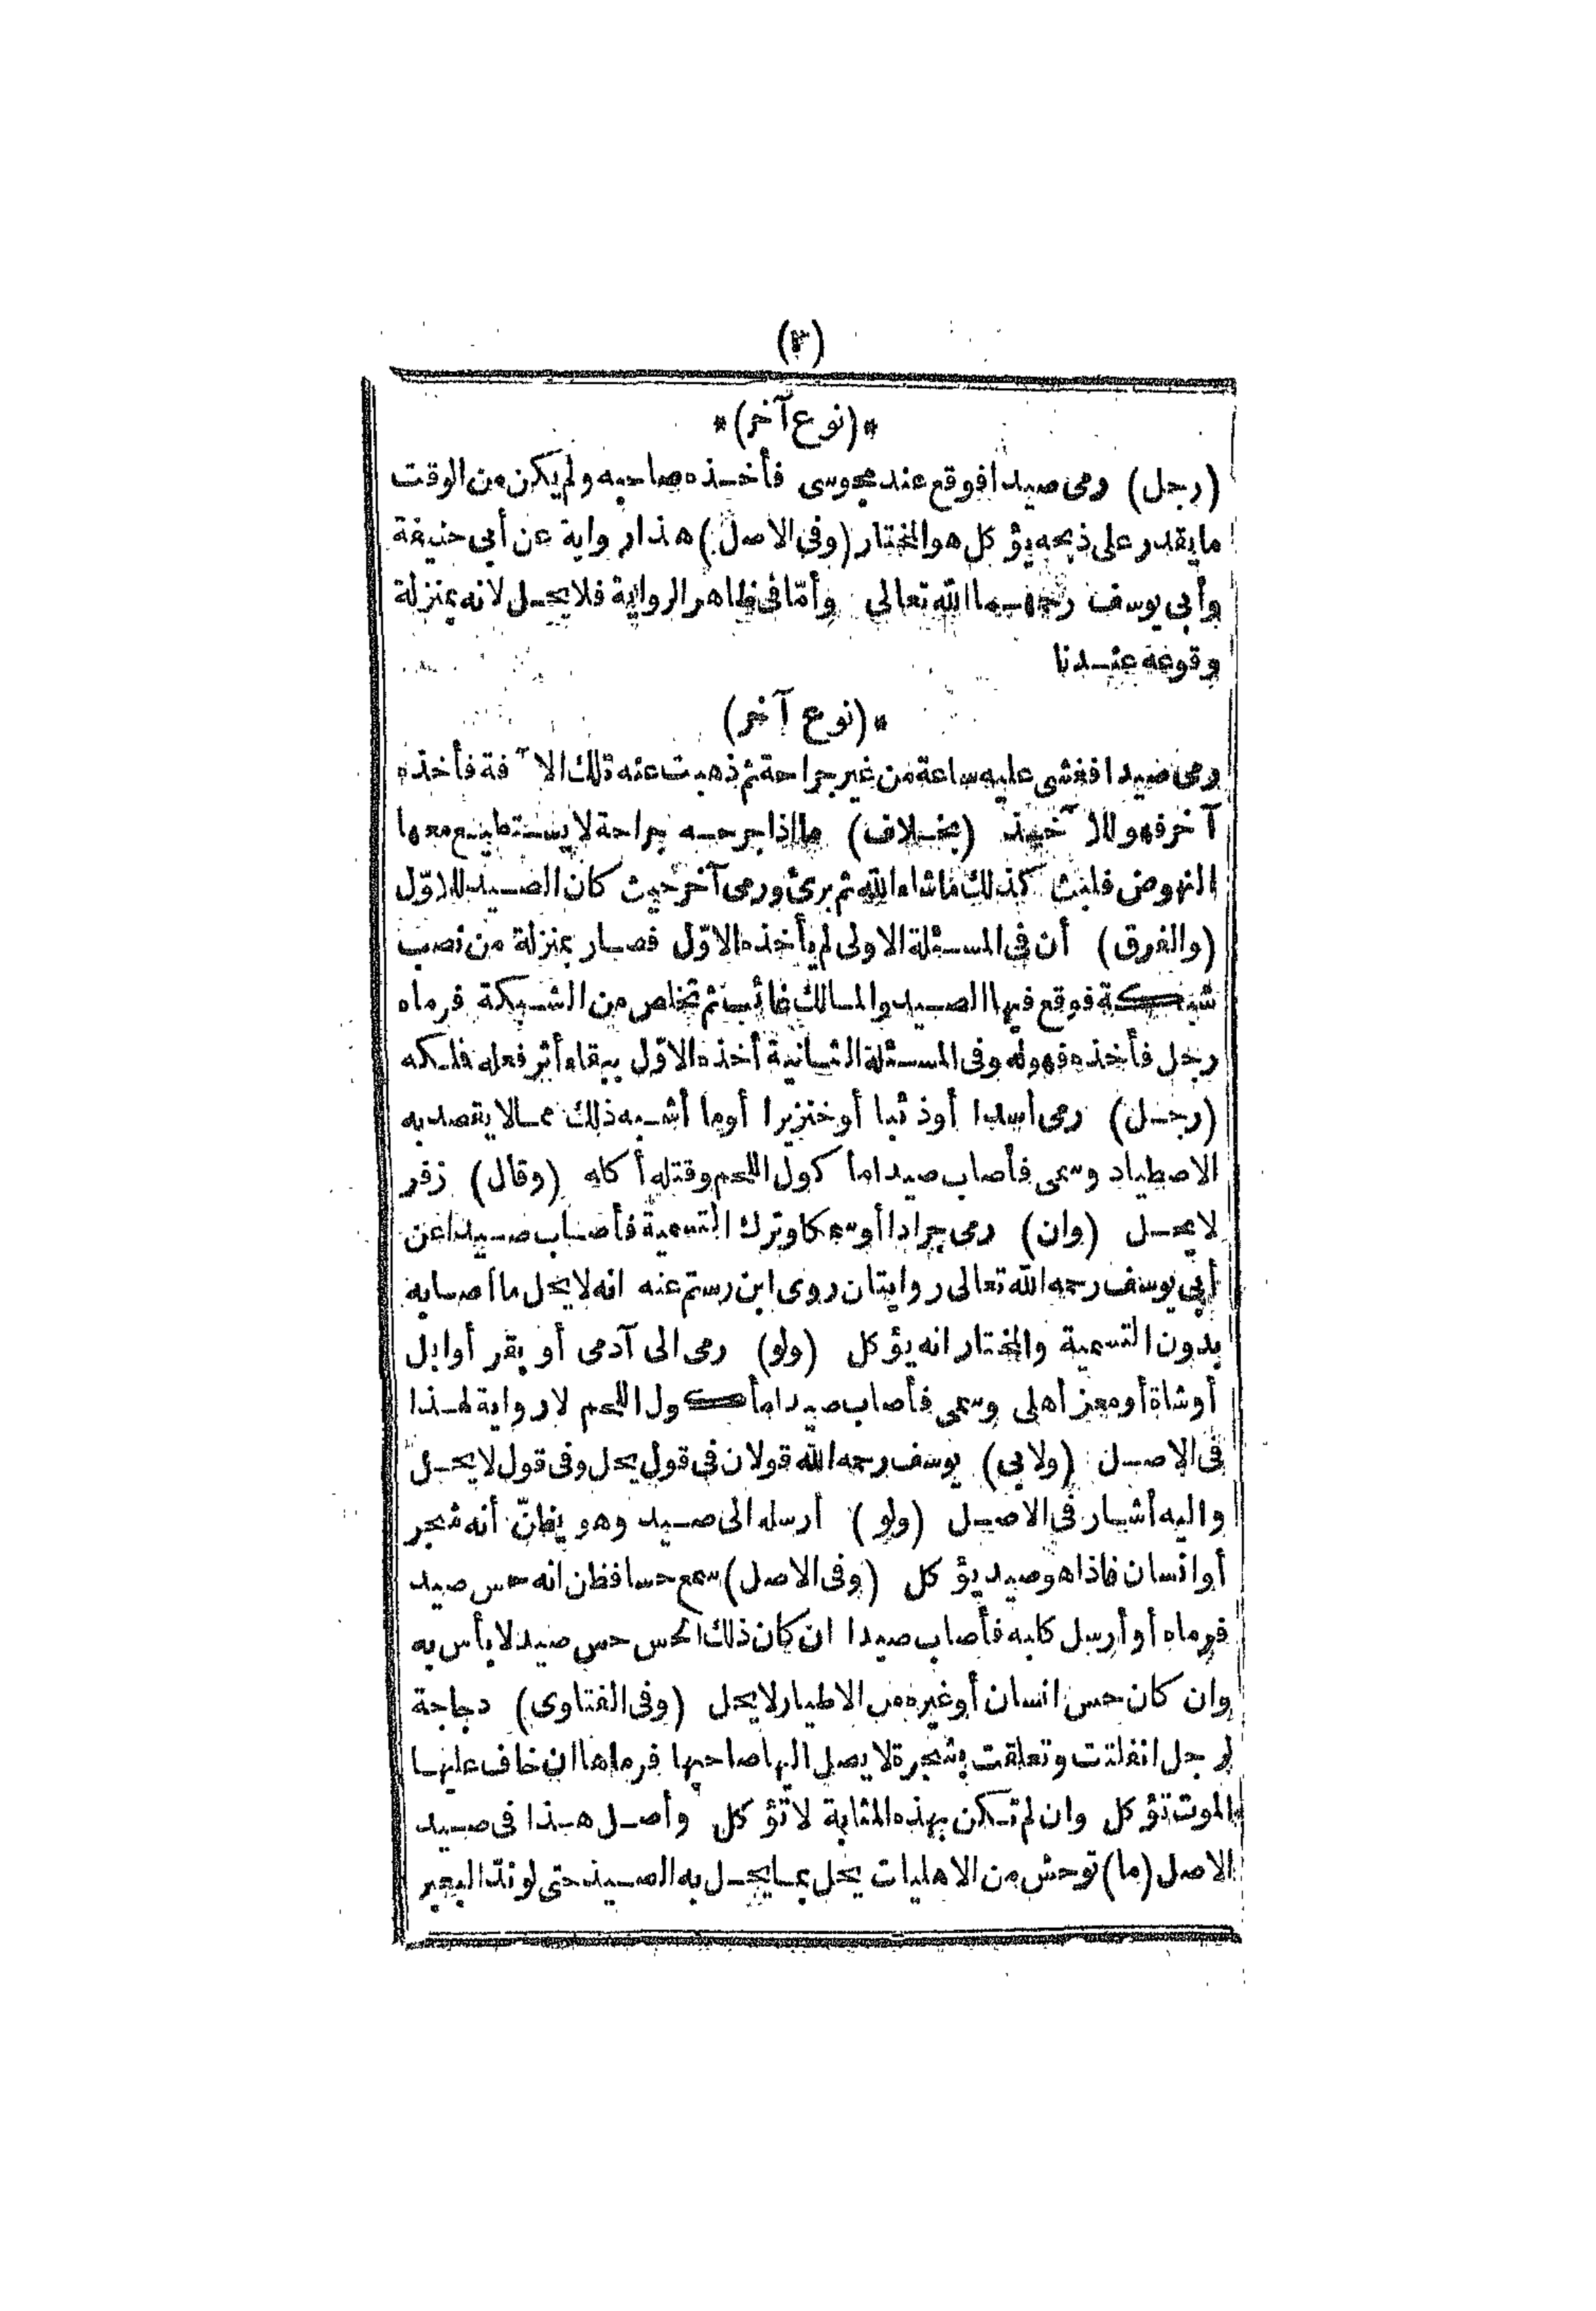 (٣)
*(نوع آخر)*
(رجل) رمى صيدا فوقع عند مجوسى فأخذه صاحبه ولم يكن من الوقت
ما يقدر على ذبحه يؤكل هو المختار (وفى الاصل) هذا رواية عن أبى حنيفة
وأبى يوسف رحمهما الله تعالى وأمّا فى ظاهر الرواية فلا يحل لانه بمنزلة
وقوعه عندنا
*(نوع آخر)
رمى صيدا فغشى عليه ساعة من غير جراحة ثم ذهبت عنه تلك الآفة فأخذه
آخر فهو للآخذ (بخلاف) ما اذا جرحه جراحة لا يستطيع معها
النهوض فلبث كذلك ما شاء الله ثم برئ ورمى آخر حيث كان الصيد للاوّل
(والفرق) أن فى المسئلة الاولى لم يأخذه الاوّل فصار بمنزلة من نصب
شبكة فوقع فيها الصيد والمالك غائب ثم تخلص من الشبكة فرماه
رجل فأخذه فهو له وفى المسئلة الثانية أخذه الاوّل ببقاء أثر فعله فملكه
(رجل) رمى أسدا أو ذئبا أو خنزيرا أو ما أشبه ذلك مما لا يقصد به
الاصطياد وسمى فأصاب صيدا مأكول اللحم وقتله أكله (وقال) زفر
لا يحل (وان) رمى جرادا أو سمكا وترك التسمية فأصاب صيدا عن
أبى يوسف رحمه الله تعالى روايتان روى ابن رستم عنه انه لا يحل ما أصابه
بدون التسمية والمختار انه يؤكل (ولو) رمى الى آدمى أو بقر أو ابل
أو شاة أو معز أهلى وسمى فأصاب صيدا مأكول اللحم لا رواية لهذا
فى الاصل (ولابى) يوسف رحمه الله قولان فى قول يحل وفى قول لا يحل
واليه أشار فى الاصل (ولو) أرسله الى صيد وهو يظنّ أنه شجر
أو انسان فاذا هو صيد يؤكل (وفى الاصل) سمع حسا فظن انه حس صيد
فرماه أو أرسل كلبه فأصاب صيدا ان كان ذلك الحس حس صيد لا بأس به
وان كان حس انسان أو غيره من الاطيار لا يحل (وفى الفتاوى) دجاجة
لرجل انفلتت وتعلقت بشجرة لا يصل اليها صاحبها فرماها ان خاف عليها
الموت تؤكل وان لم تكن بهذه المثابة لا تؤكل وأصل هذا فى صيد
الاصل (ما) توحش من الاهليات يحل بما يحل به الصيد حتى لو ندّ البعير